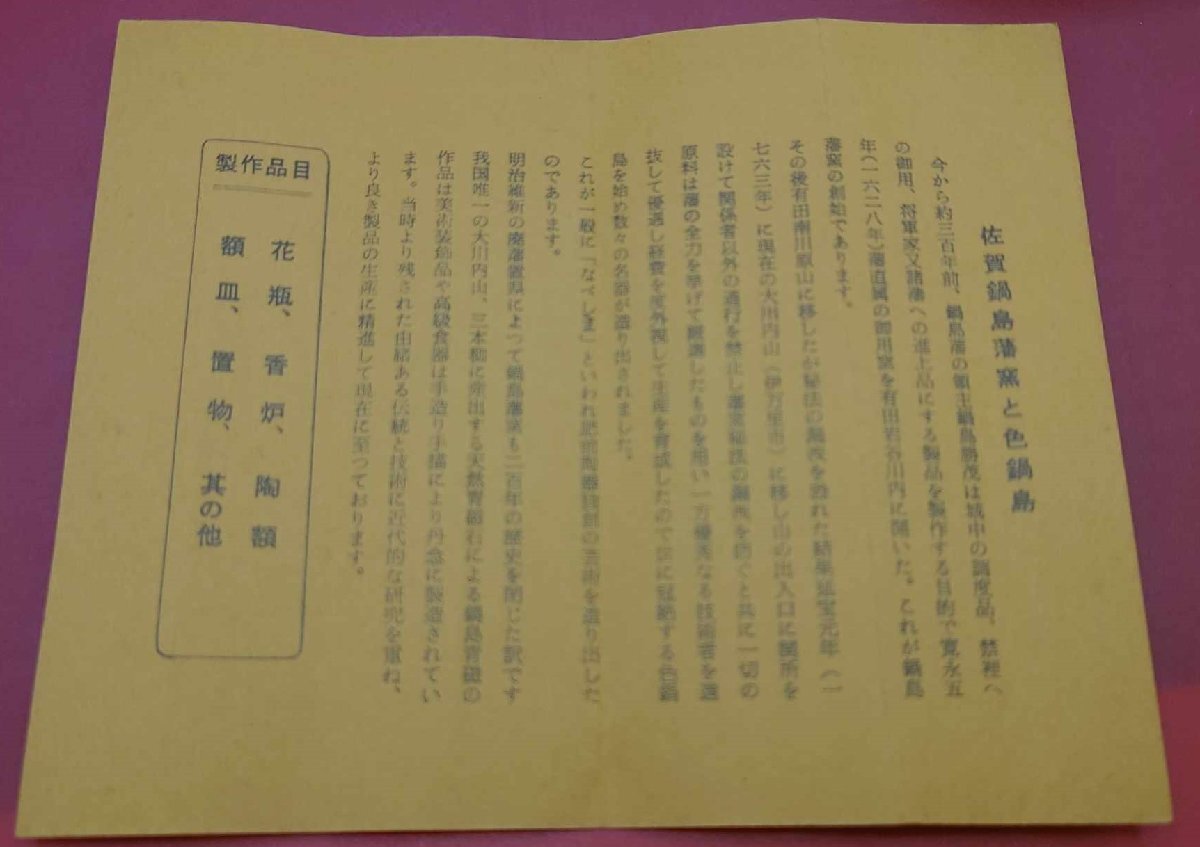 佐賀鍋島藩窯と色鍋島
今から約三百年前、鍋島藩の領主鍋島勝茂は城中の調度品、禁裡へ
の御用、将軍家又諸藩への進上品にする製品を製作する目的で寛永五
年(一六二八年)藩直属の御用窯を有田岩谷川内に開いた。これが鍋島
藩窯の創始であります。
その後有田南川原山に移したが秘法の漏洩を恐れた結果延宝元年(一
七六三年)に現在の大川内山(伊万里市)に移し山の出入口に関所を
設けて関係者以外の通行を禁止し藩窯秘法の漏洩を防ぐと共に一切の
原料は藩の全力を挙げて厳選したものを用い一方優秀なる技術者を選
抜して優遇し経費を度外視して生産を育成したので世に冠絶する色鍋
島を始め数々の名器が造り出されました。
これが一般に「なべしま」といわれ肥前陶磁独自の芸術を造り出した
のであります。
明治維新の廃藩置県によって鍋島藩窯も二百年の歴史を閉じた訳です
我国唯一の大川内山、三本柳に産出する天然青磁石による鍋島青磁の
作品は美術装飾品や高級食器は手造り手描により丹念に製造されてい
ます。当時より残された由緒ある伝統と技術に近代的な研究を重ね、
より良き製品の生産に精進して現在に至つております。
製作品目
花瓶、香炉、陶額
額皿、置物、其の他